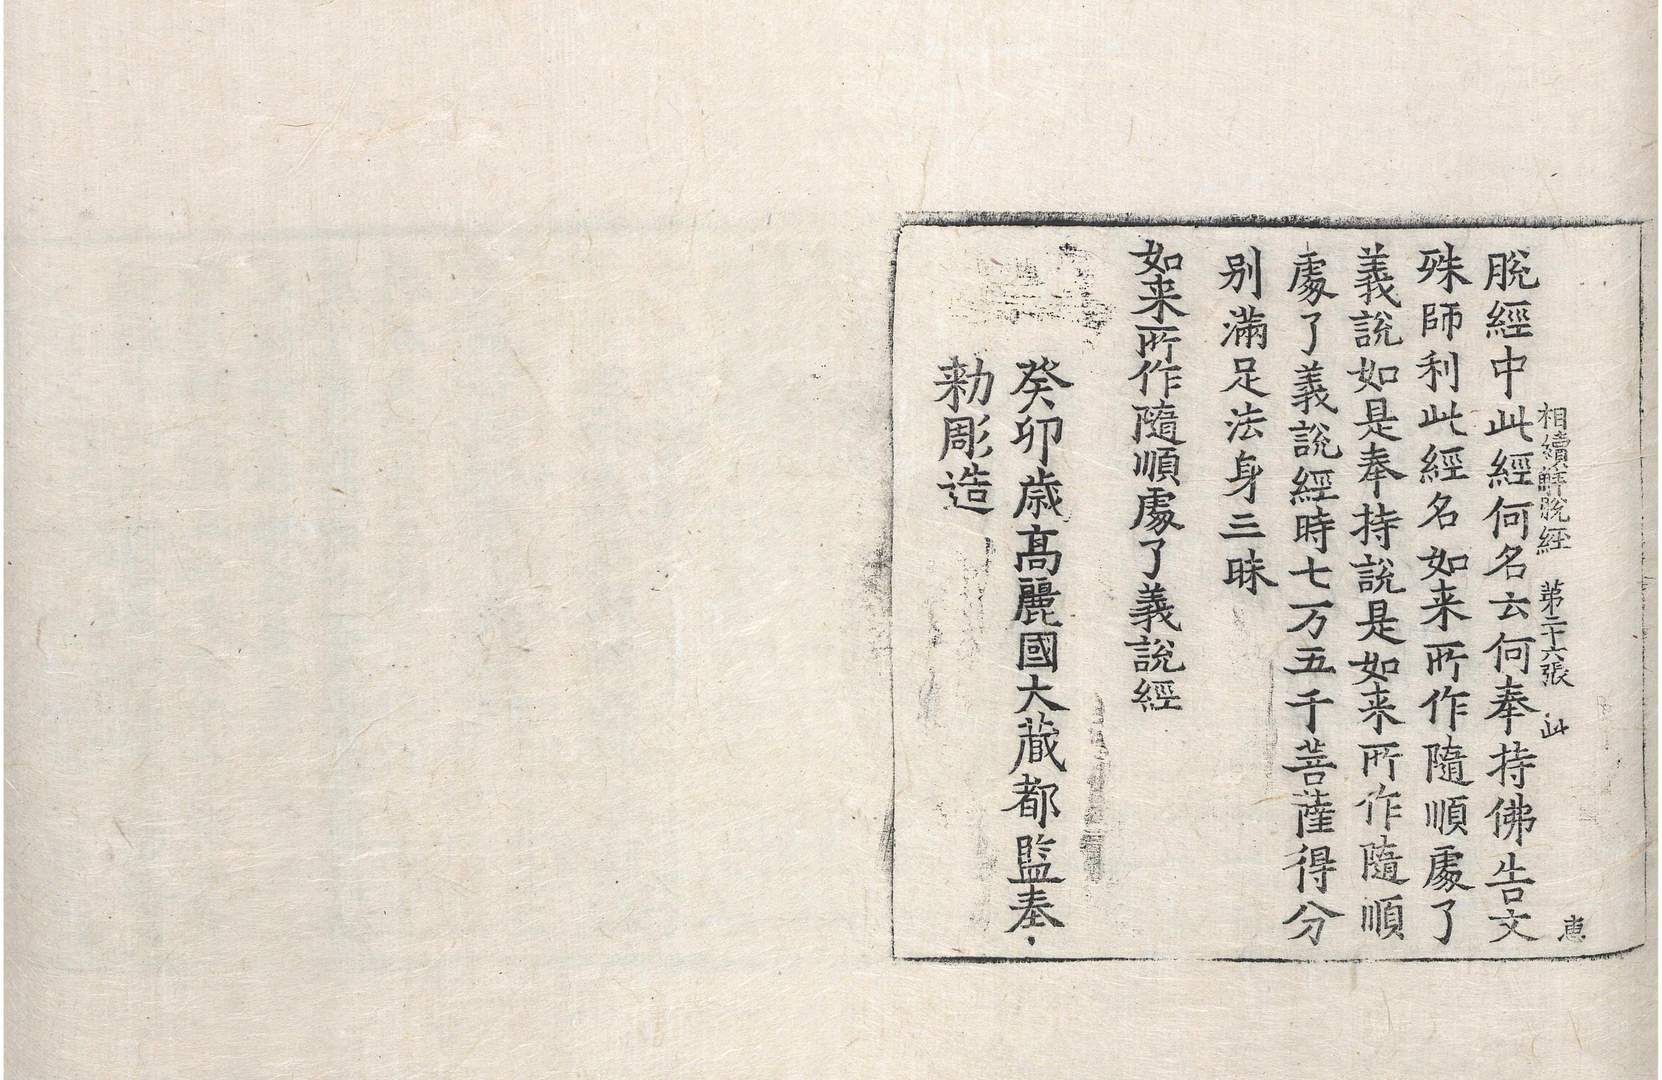 相續解脫經 第二十六張 此 惠
脫經中此經何名云何奉持佛告文
殊師利此經名如来所作隨順處了
義說如是奉持說是如来所作隨順
處了義說經時七万五千菩薩得分
别滿足法身三昧
如来所作隨順處了義說經
癸卯歲髙麗國大藏都監奉
勑彫造